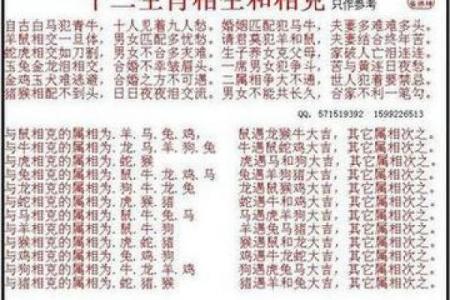 十二生肖相生和相克 只作参考
自古白马犯青牛, 十人见着九人愁。 婚姻匹配犯马牛, 夫妻多难难多头。
羊鼠相交一旦休, 男女匹配多忧愁。 清晨莫犯羊和鼠,
蛇虎相交如刀割, 男女不合多求忧。 生子养女克父母, 家破人亡泪连连。
玉兔金龙泪相合, 合婚不幸皱眉头。 一世男女犯争斗, 苦与黄连日夜愁。
金鸡玉犬难逃避, 合婚之方不可遇。 二属相争大不通, 世人犯着要禁忌。
猪猴相配不到头, 日日夜夜泪交流。 男女不能共长久, 合家不利一笔勾。
QQ. 571519392 1599226513
与鼠相克的属相为. 羊, 马, 兔, 鸡, 鼠遇龙猴牛大吉, 其它属相次之。
与牛相克的属相为. 龙, 马, 羊, 狗, 兔 牛遇鼠蛇鸡大吉, 其它属相次之。
与虎相克的属相为. 蛇, 猴 虎遇马和狗大吉, 其它属相次之。
与兔相克的属相为. 鼠, 牛, 龙, 鸡, 马 兔遇羊狗猪大吉, 其它属相次之。
与龙相克的属相为. 狗, 牛, 龙, 兔 龙遇鼠猴鸡大吉, 其它属相次之。
与蛇相克的属相为. 虎, 猴, 猪 蛇遇牛和鸡大吉, 其它属相次之。
与马相克的属相为. 鼠, 牛, 兔, 马 马遇虎羊狗大吉, 其它属相次之。
与羊相克的属相为. 鼠, 牛, 狗 羊遇兔马猪大吉, 其它属相次之。
与猴相克的属相为. 虎, 蛇, 猪 猴遇鼠和龙大吉, 其它属相次之。
与鸡相克的属相为. 兔, 鸡, 狗 鸡遇牛龙蛇大吉, 其它属相次之。
与狗相克的属相为. 牛, 龙, 羊, 鸡 狗遇虎兔马大吉, 其它属相次之。
与猪相克的属相为. 蛇, 猪, 猴 猪遇羊和兔大吉, 其它属相次之。